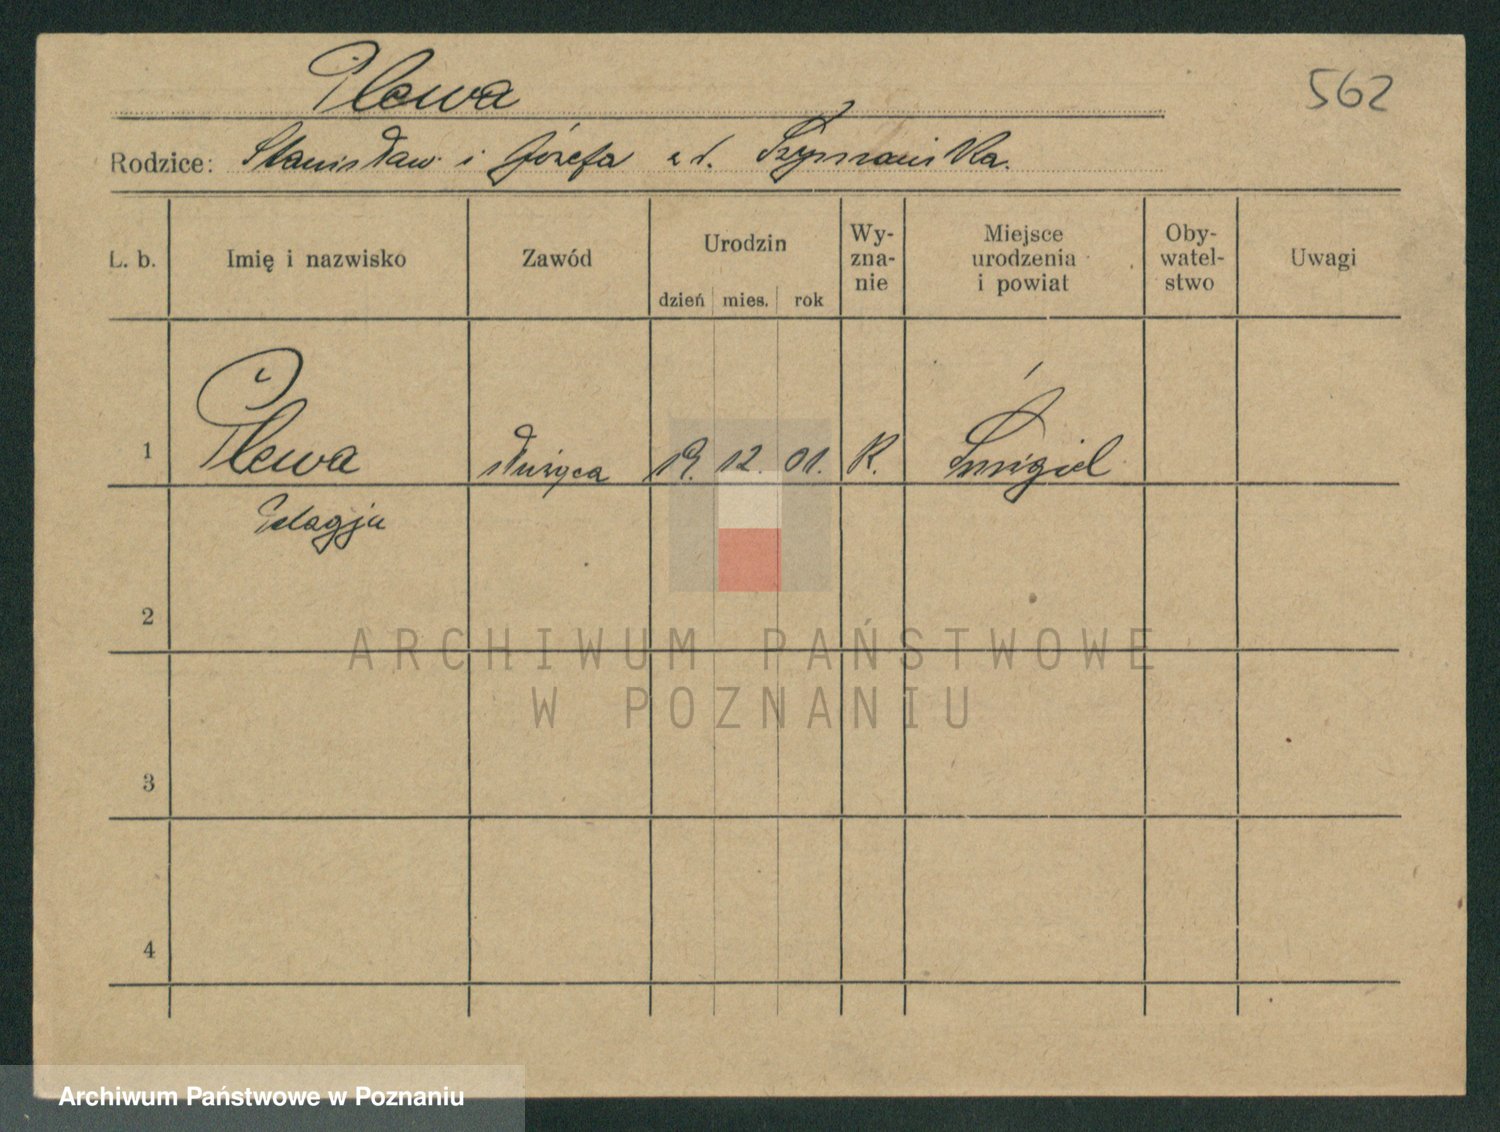 Plewa
562
Rodzice: Stanisław i Józefa z d. Szymańska.
L. b. Imię i nazwisko Zawód Urodzin Wy- Miejsce Oby- Uwagi
zna- urodzenia watel-
nie i powiat stwo
dzień mies. rok
1 Plewa służąca 19. 12. 01. K. Śmigiel
Pelagja
2
ARCHIWUM PAŃSTWOWE
W POZNANIU
3
4
Archiwum Państwowe w Poznaniu